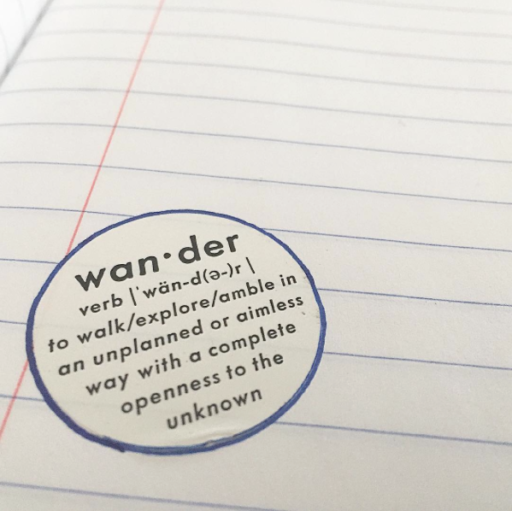 wan·der
verb |ˈwän-d(ə-)r \
to walk/explore/amble in
an unplanned or aimless
way with a complete
openness to the
unknown